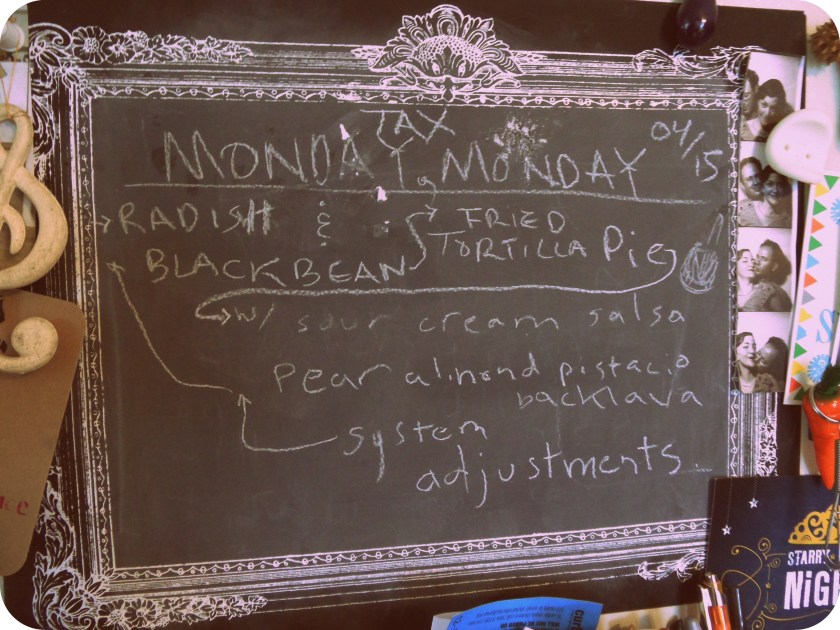 TAX
MONDAY, MONDAY
04/15
RADISH & FRIED
BLACKBEAN TORTILLA Pie
w/ sour cream salsa
pear almond pistacio
backlava
system
adjustments
STARRY
NiG